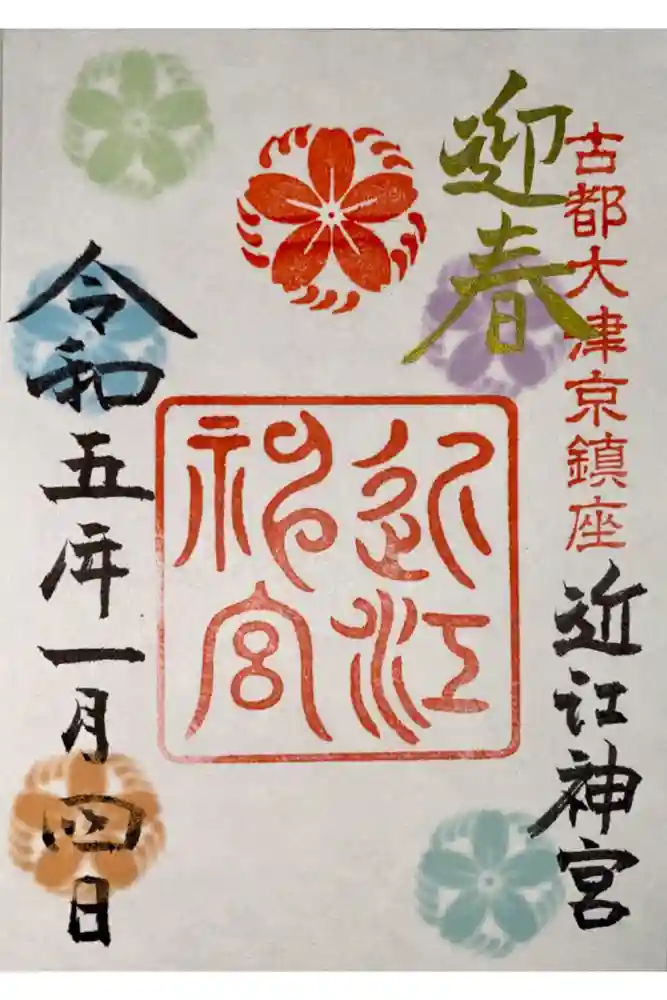 迎春
古都大津京鎮座
近江神宮
近江神宮
令和五年一月四日